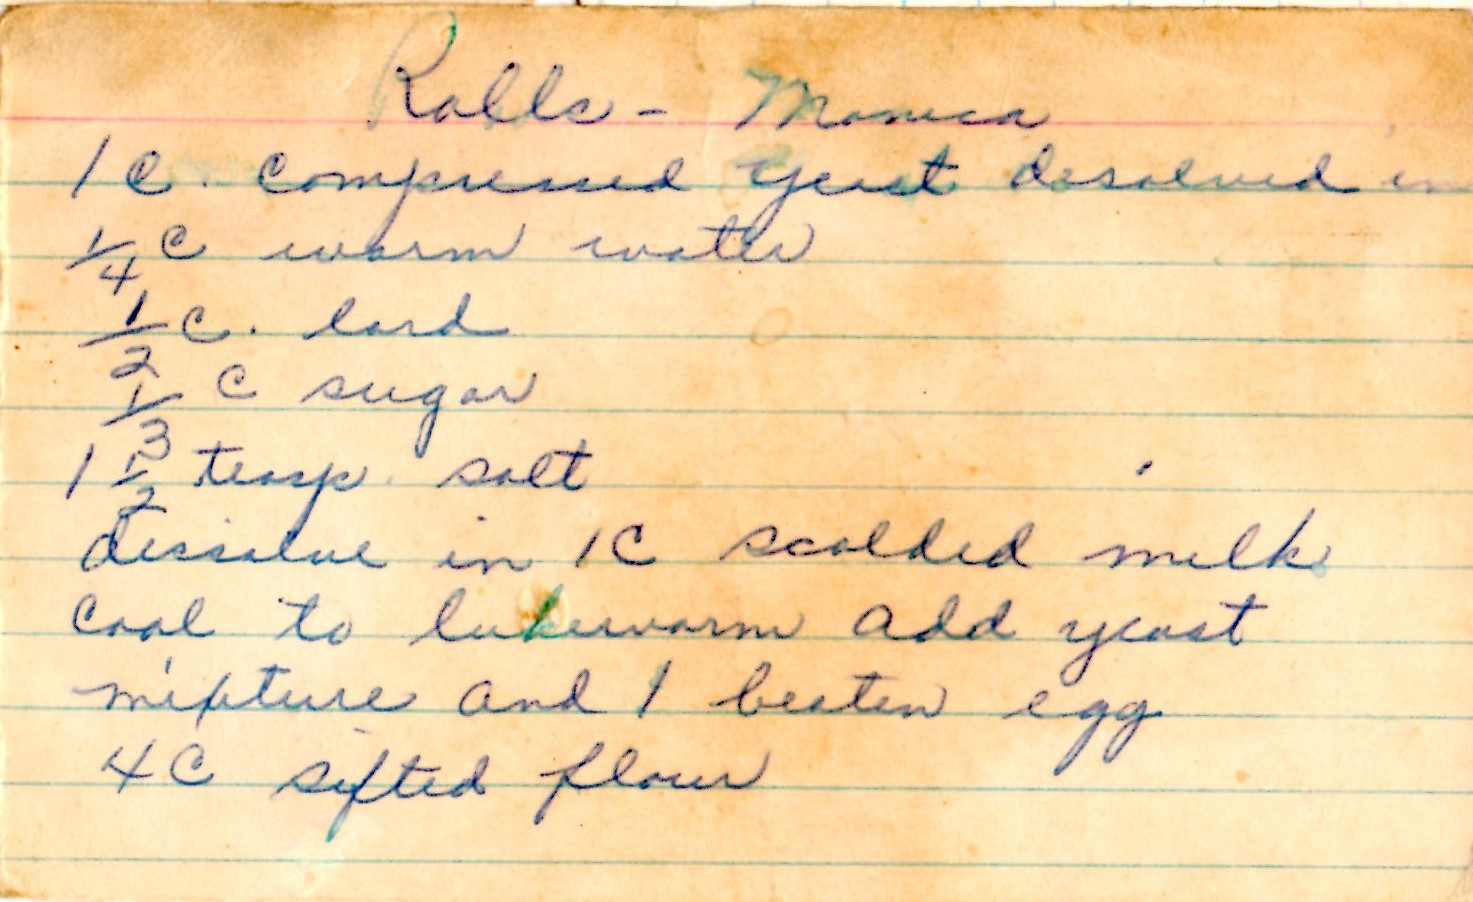 Rolls - Monica
1 c. compressed yeast desolved in
1/4 c warm water
1/2 c. lard
1/3 c sugar
1 1/2 teasp. salt
dissolve in 1 C scalded milk
cool to lukewarm add yeast
mixture and 1 beaten egg
4 C sifted flour